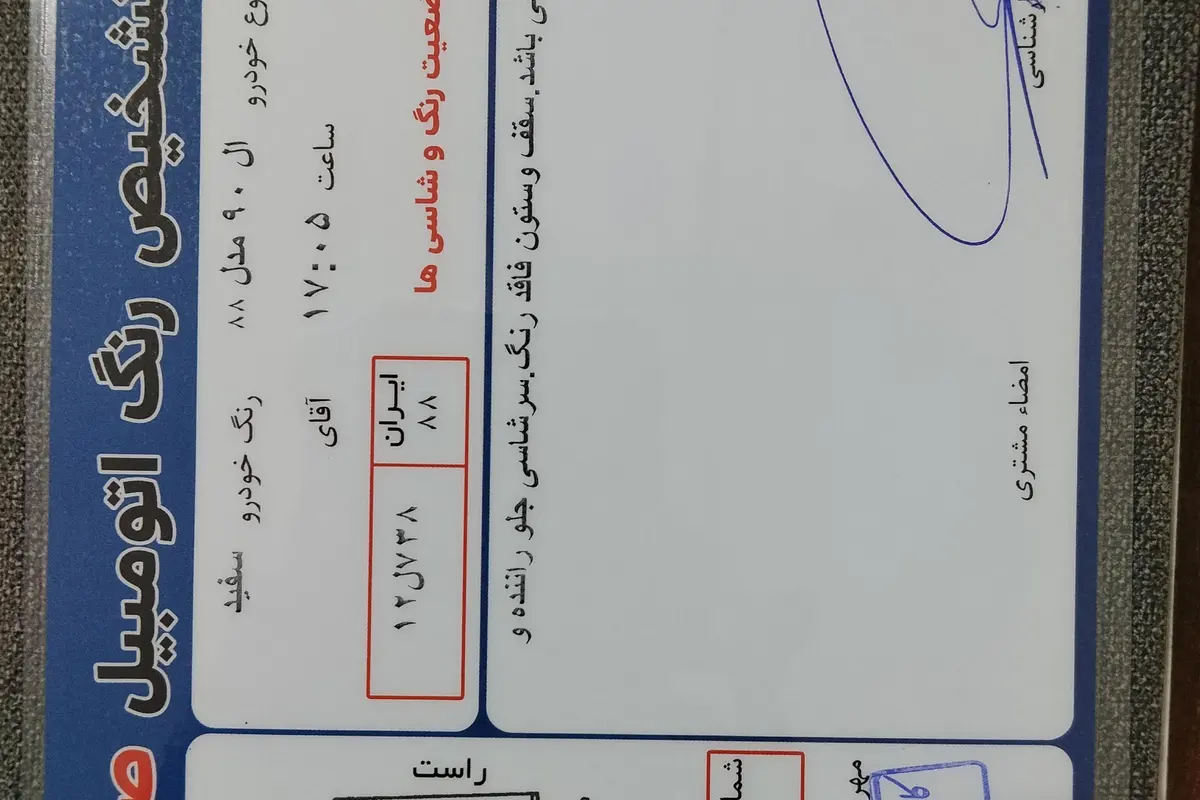 تشخیص رنگ اتومبیل
خودرو ال ۹۰ مدل ۸۸ رنگ خودرو سفید
ساعت ۱۷:۰۵ آقای
وضعیت رنگ و شاسی ها
ایران
۸۸
۱۲ل۷۳۸
باشد.سقف وستون فاقد رنگ.سرشاسی جلو راننده و
امضاء مشتری
راست
مهر